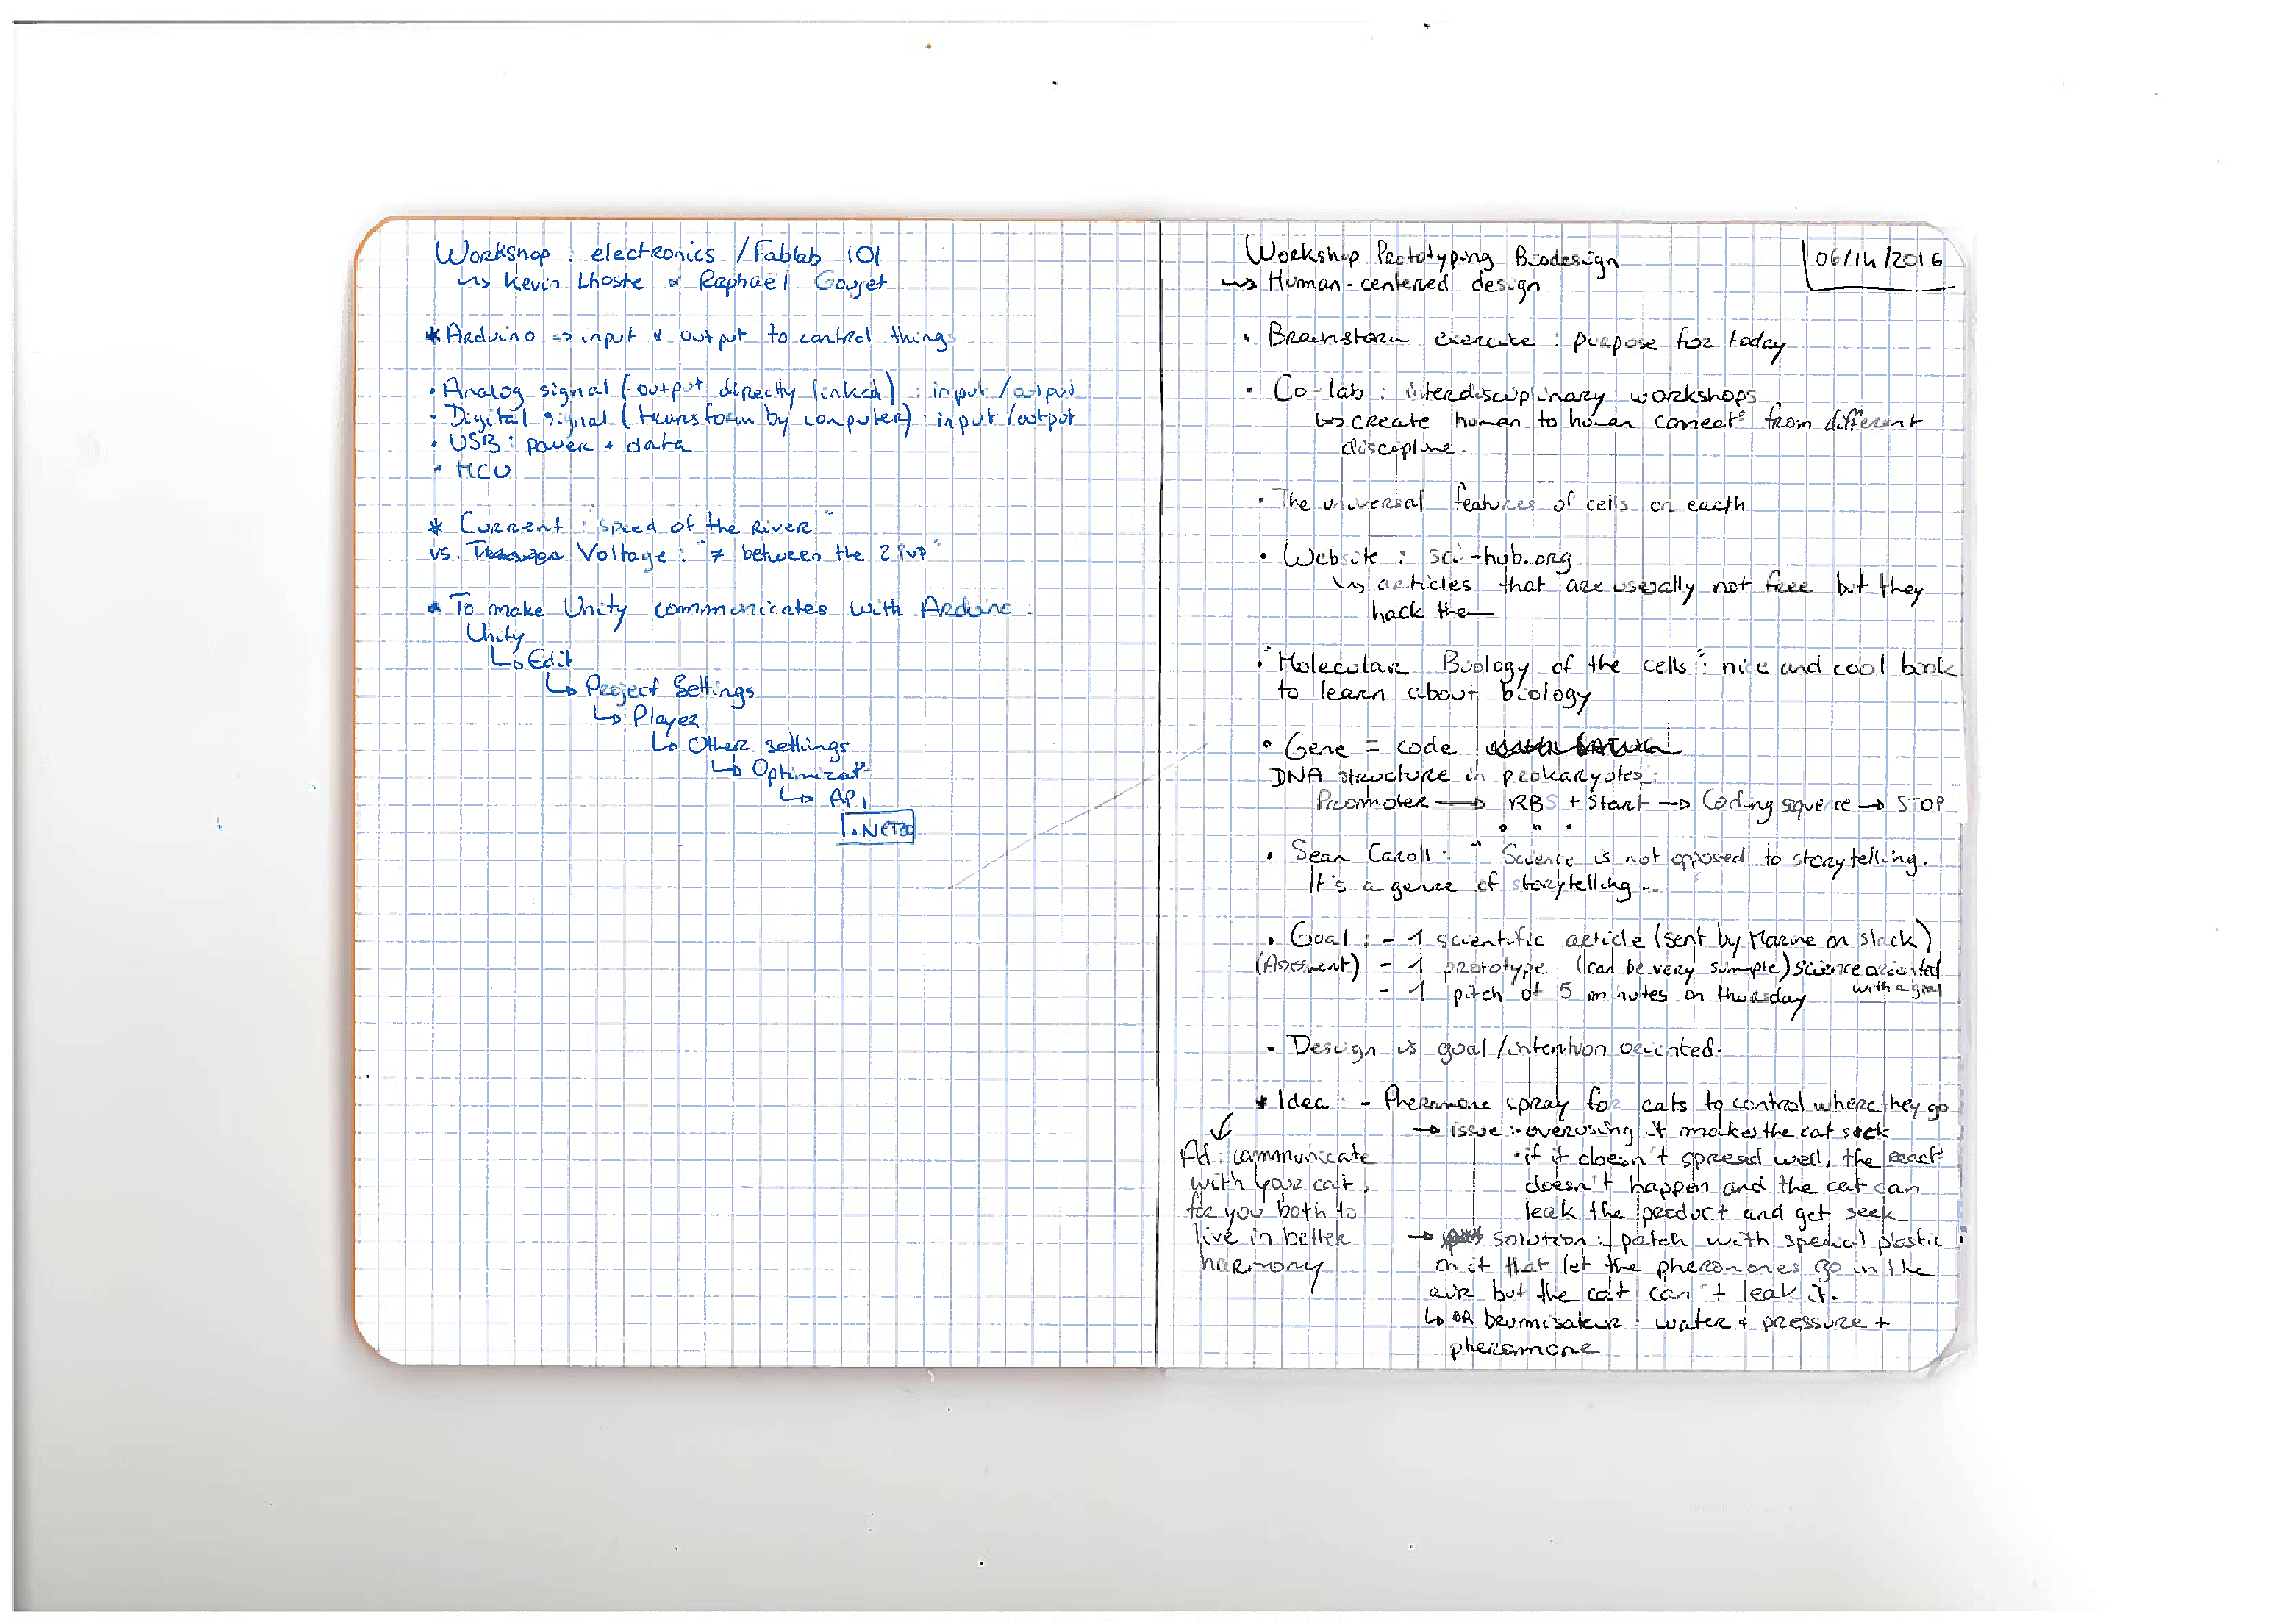 Workshop : electronics / Fablab 101
↳ Kevin Lhoste & Raphaël Goujet
* Arduino => input & output to control things
• Analog signal (output directly linked) : input / output
• Digital signal (transform by computer) : input / output
• USB : power + data
• MCU
* Current : "speed of the river"
vs. Voltage : "≠ between the 2
* To make Unity communicates with Arduino.
Unity
↳ Edit
↳ Project Settings
↳ Player
↳ Other settings
↳ Optimizat°
↳ API
.NET 2.0
Workshop Prototyping Biodesign
06/14/2016
↳ Human-centered design
• Brainstorm exercise : purpose for today
• Co-lab : interdisciplinary workshops
↳ create human to human connect° from different
discipline.
• The universal features of cells on earth
• Website : sci-hub.org
↳ articles that are usually not free but they
hack them
• "Molecular Biology of the cells" : nice and cool book
to learn about biology
• Gene = code
DNA structure in prokaryotes :
Promoter → RBS + Start → Coding sequence → STOP
• Sean Caroll : " Science is not opposed to storytelling.
It's a genre of storytelling... "
• Goal : - 1 scientific article (sent by Marine on slack)
(Assesment) - 1 prototype (can be very simple) science oriented
with a goal
- 1 pitch of 5 minutes on thursday
• Design is goal / intention oriented.
* Idea : - Pheromone spray for cats to control where they go
→ issue : • overusing it makes the cat sick
• if it doesn't spread well, the react°
doesn't happen and the cat can
leak the product and get seek
→ solution : patch with special plastic
on it that let the pheromones go in the
air but the cat can't leak it.
↳ OR brumisateur : water + pressure +
pheromone
Ad : communicate
with your cat,
for you both to
live in better
harmony